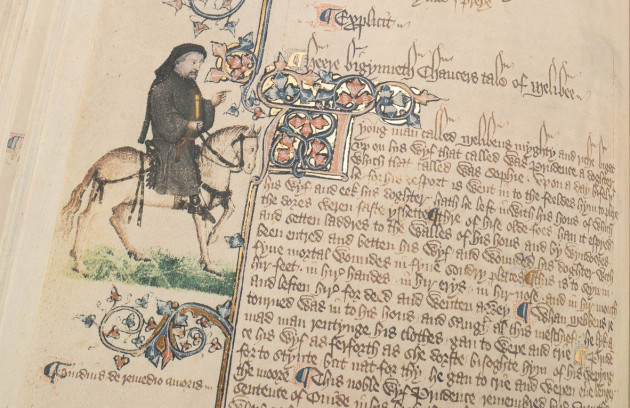 Explicit
Heere bigynneth Chaucers tale of Melibee
A yong man called Melibeus myghty and riche bigat
vp on his wyf that called was Prudence a doghter
which that called was Sophie Vpon a day bifel
he for his desport is went in to the feeldes hym to pleye
his wyf and eek his doghter hath he left in with his hous of which
the dores weren faste yshette Thre of hise olde foes han it espyed
and setten laddres to the walles of his hous and by wyndowes
been entred and betten his wyf and wounded his doghter with
fyue mortal woundes in fyue sondry places This is to seyn in
hir feet in hir handes in hir erys in hir nose and in hir mouth
and leften hir for deed and wenten awey Whan Melibeus re
tourned was in to his hous and saugh al this meschief he lyk a
mad man rentynge his clothes gan to wepe and crie Prude
ce his wyf as ferforth as she dorste bisoghte hym of his wepyng
for to stynte but nat for thy he gan to crie and wepen euere lenger
the moore This noble wyf Prudence remembred hire
sentence of Ouide
Ouidius de remedio amoris